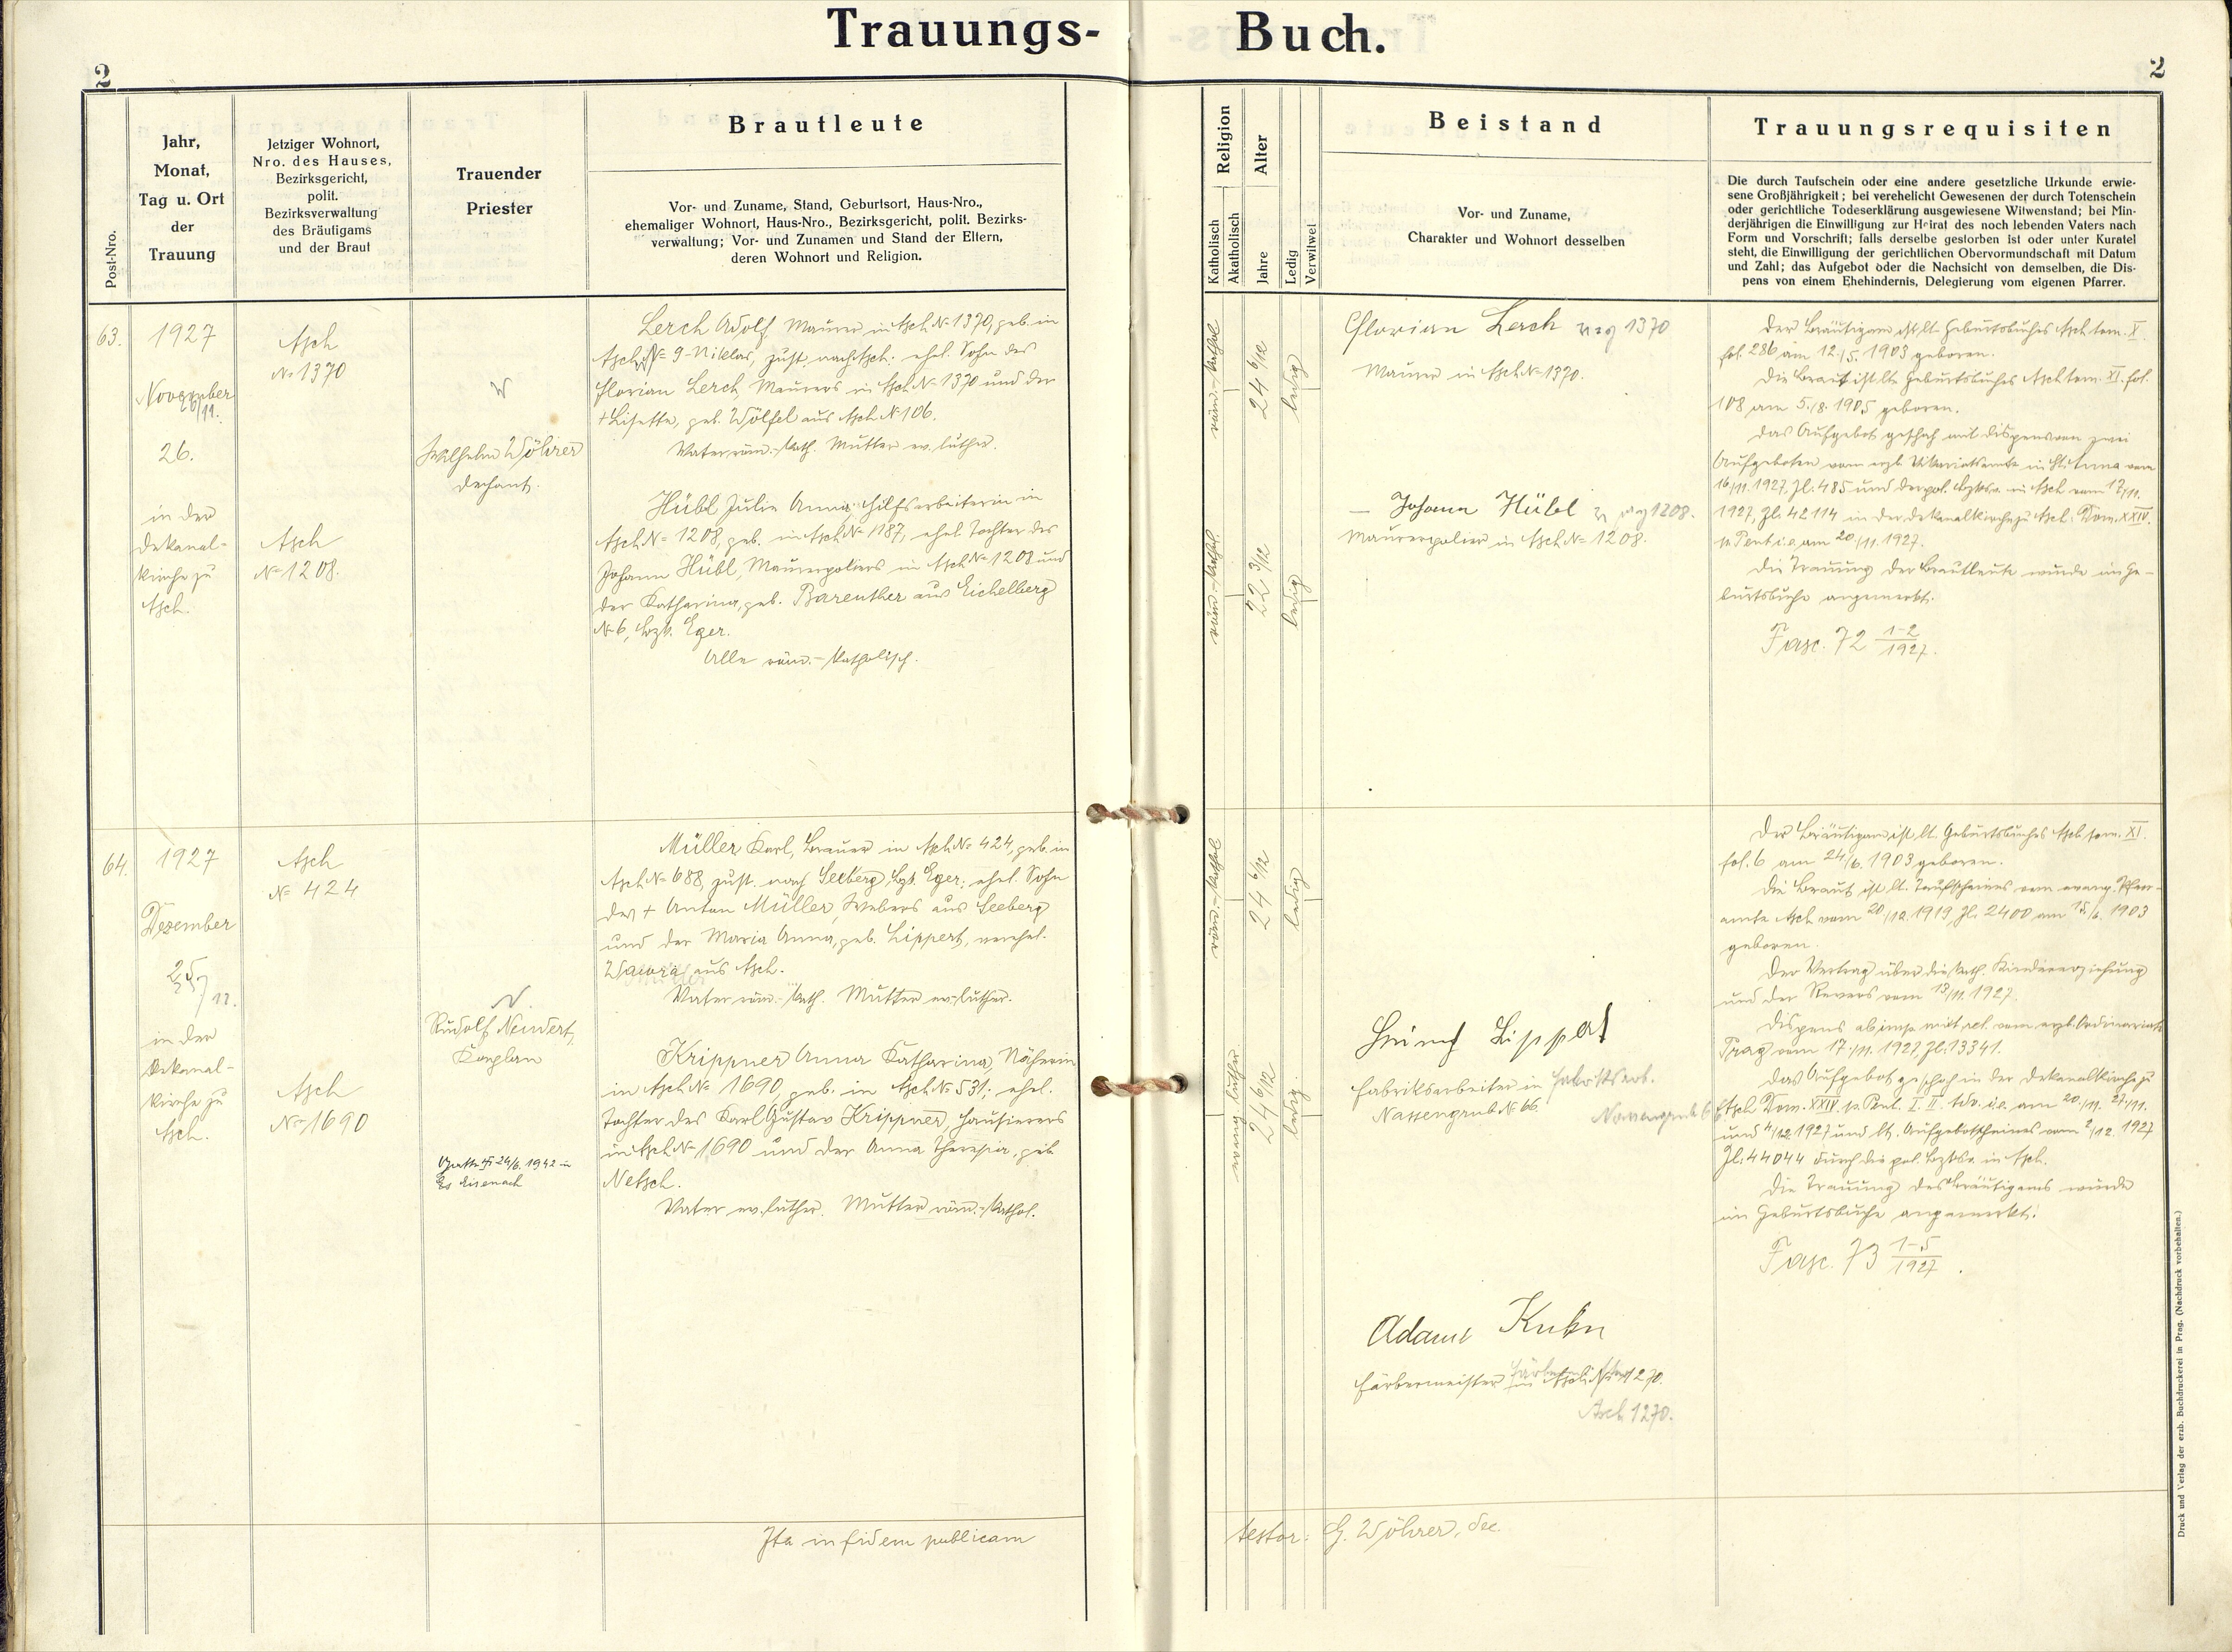 Trauungs- Buch.
2
2
Post-Nro.
Jahr,
Monat,
Tag u. Ort
der
Trauung
Jetziger Wohnort,
Nro. des Hauses,
Bezirksgericht,
polit.
Bezirksverwaltung
des Bräutigams
und der Braut
Trauender
Priester
Brautleute
Vor- und Zuname, Stand, Geburtsort, Haus-Nro.,
ehemaliger Wohnort, Haus-Nro., Bezirksgericht, polit. Bezirks-
verwaltung; Vor- und Zunamen und Stand der Eltern,
deren Wohnort und Religion.
Religion
Katholisch
Akatholisch
Alter
Jahre
Ledig
Verwitwet
Beistand
Vor- und Zuname,
Charakter und Wohnort desselben
Trauungsrequisiten
Die durch Taufschein oder eine andere gesetzliche Urkunde erwie-
sene Großjährigkeit; bei verehelicht Gewesenen der durch Totenschein
oder gerichtliche Todeserklärung ausgewiesene Witwenstand; bei Min-
derjährigen die Einwilligung zur Heirat des noch lebenden Vaters nach
Form und Vorschrift; falls derselbe gestorben ist oder unter Kuratel
steht, die Einwilligung der gerichtlichen Obervormundschaft mit Datum
und Zahl; das Aufgebot oder die Nachsicht von demselben, die Dis-
pens von einem Ehehindernis, Delegierung vom eigenen Pfarrer.
63.
1927
November
26/11.
26.
in der
Dekanal-
kirche zu
Asch.
Asch
No 1370
Asch
No 1208.
Wilhelm Wöhrer
Dechant.
Lerch Adolf, Maurer in Asch No 1370, geb. in
Asch No 9-Niklas, zust. nach Asch; ehel. Sohn des
Florian Lerch, Maurers in Asch No 1370 und der
+ Lisette, geb. Wölfel aus Asch No 106.
Vater röm.-kath. Mutter ev. luther.
Hübl Julie Anna, Hilfsarbeiterin in
Asch No 1208, geb. in Asch No 1187, ehel. Tochter des
Johann Hübl, Maurerpoliers in Asch No 1208 und
der Katharina, geb. Bareuther aus Eichelberg
No 6, Bzk. Eger.
Alle röm.-katholisch.
röm.-kathol.
24 6/12
ledig
röm.-kathol.
22 3/12
ledig
Florian Lerch 1370
Maurer in Asch No 1370.
Johann Hübl 1208.
Maurerpolier in Asch No 1208.
Der Bräutigam ist lt. Geburtsbuches Asch tom. X.
fol. 286 am 12./5. 1903 geboren.
Die Braut ist lt. Geburtsbuches Asch tom. XI. fol.
108 am 5./8. 1905 geboren.
Das Aufgebot geschah mit Dispens von zwei
Aufgeboten vom erzb. Vikariatsamte in St. Anna vom
16/11. 1927, Zl. 485 und der pol. Bzksv. in Asch vom 17/11.
1927, Zl. 42114 in der Dekanalkirche zu Asch: Dom. XXIV.
p. Pent. i. e. am 20./11. 1927.
Die Trauung der Brautleute wurde im Ge-
burtsbuche angemerkt.
Fasc. 72 1-2/1927.
64.
1927
Dezember
25
25/12.
in der
Dekanal-
kirche zu
Asch.
Asch
No 424
Asch
No 1690
Rudolf Neudert,
Kaplan
Gatte + 24/6. 1942 in
Eisenach
Müller Karl, Brauer in Asch No 424, geb. in
Asch No 688, zust. nach Seeberg, Bzk. Eger; ehel. Sohn
des + Anton Müller, Webers aus Seeberg
und der Maria Anna, geb. Lippert, verehel.
aus Asch.
Vater röm.-kath. Mutter ev. luther.
Krippner Anna Katharina, Näherin
in Asch No 1690, geb. in Asch No 531; ehel.
Tochter des Karl Gustav Krippner, Hausierers
in Asch No 1690 und der Anna Theresia, geb.
Netsch.
Vater ev. luther. Mutter röm.-kathol.
röm.-kathol
24 6/12
ledig
evang. luther.
24 6/12
ledig.
Lippert
Fabriksarbeiter in Fabriksarb.
Nassengrub No 66. Nassengrub 66
Adam Kuhn
Färbermeister in Asch No 1270.
Asch 1270.
Der Bräutigam ist lt. Geburtsbuches Asch tom. XI.
fol. 6 am 24/6. 1903 geboren.
Die Braut ist lt. Taufscheines vom evang. Pfarr-
amte Asch vom 20/12. 1919, Zl. 2400 am 15/6. 1903
geboren.
Der Vertrag über die kath. Kindererziehung
und der Revers vom 13/11. 1927.
Dispens ab imp. mixt. rel. vom erzb. Ordinariate
Prag vom 17./11. 1927, Zl. 13341.
Das Aufgebot geschah in der Dekanalkirche zu
Asch Dom. XXIV. p. Pent. I. II. Adv. i. e. am 20./11. 27./11.
und 4/12. 1927 und lt. Aufgebotscheines vom 2/12. 1927
Zl. 44044 durch die pol. Bzksv. in Asch.
Die Trauung des Bräutigams wurde
im Geburtsbuche angemerkt.
Fasc. 73 1-5/1927.
Ita in fidem publicam
testor: G. Wöhrer, dec.
Druck und Verlag der erzb. Buchdruckerei in Prag. (Nachdruck vorbehalten.)